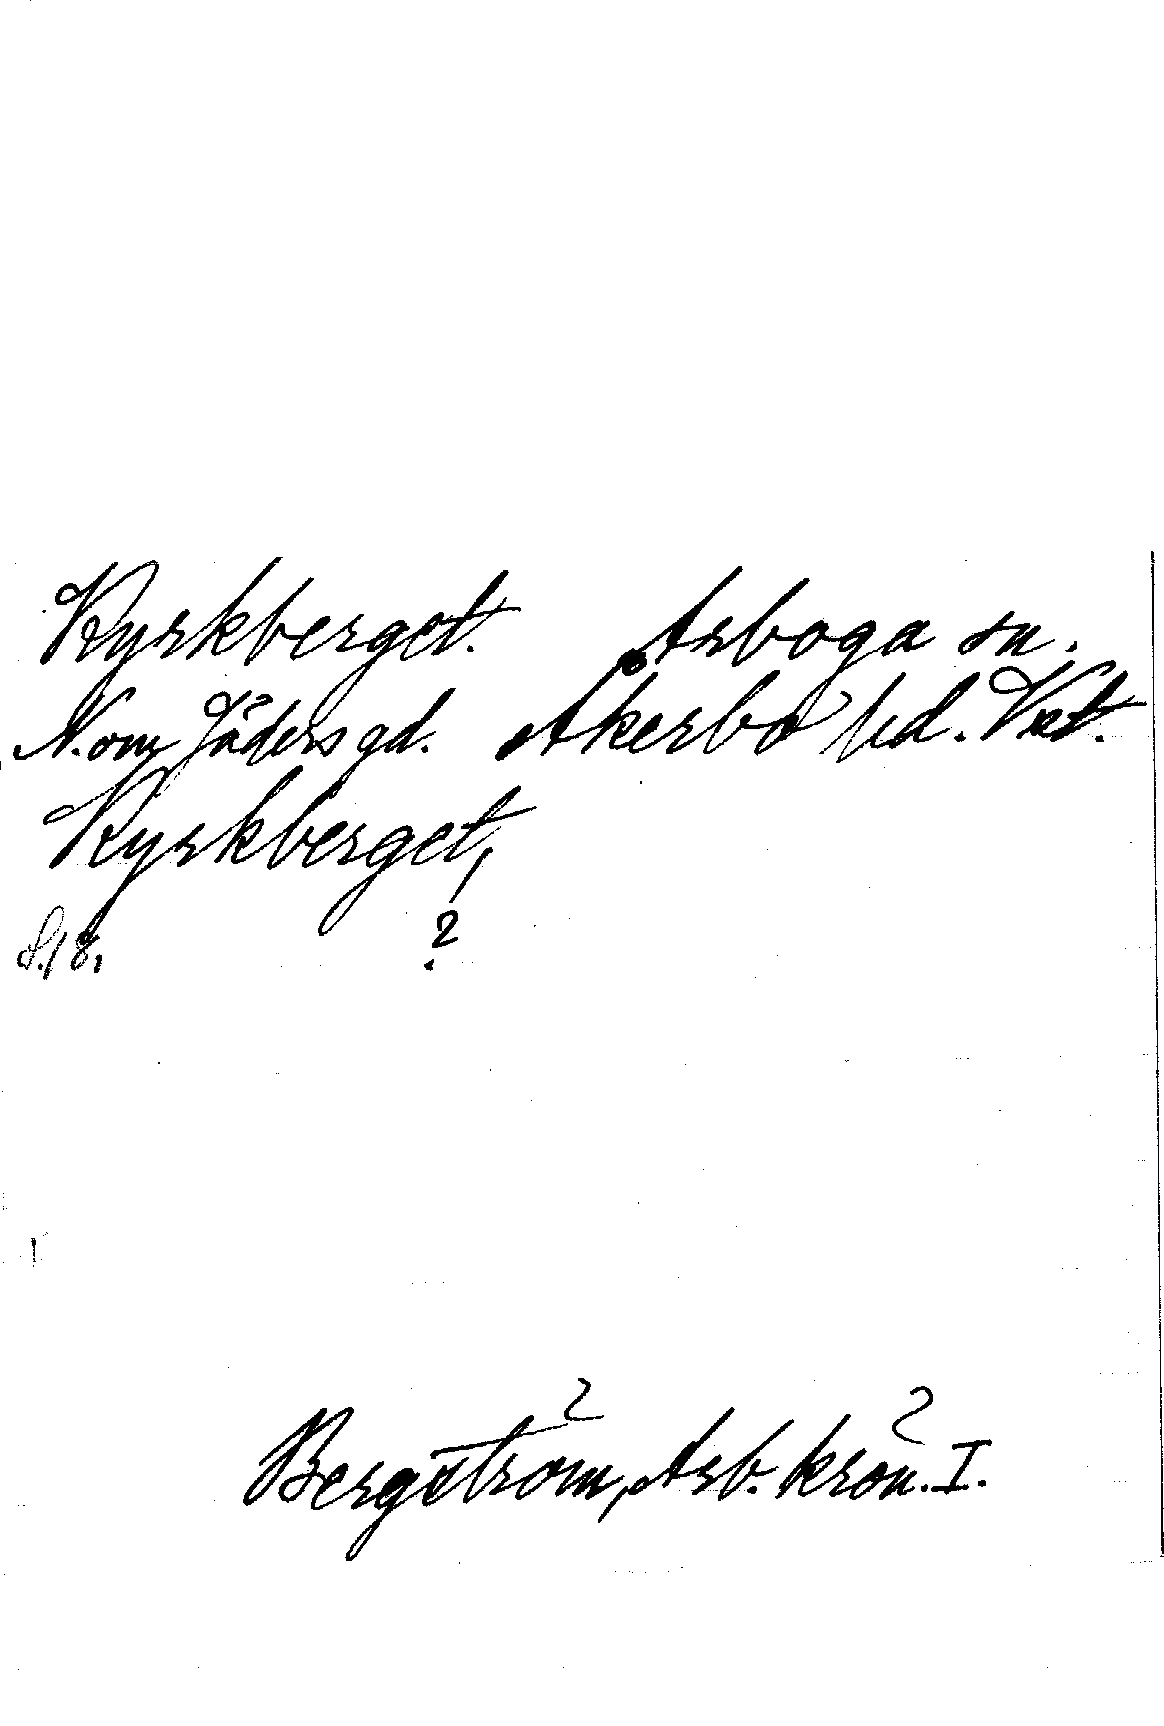 Kyrkberget. Arboga sn.
N. om Jäders gd. Åkerbo hd. Vst.
Kyrkberget,
S. 18. ?
Bergström, Arb. krön. I.